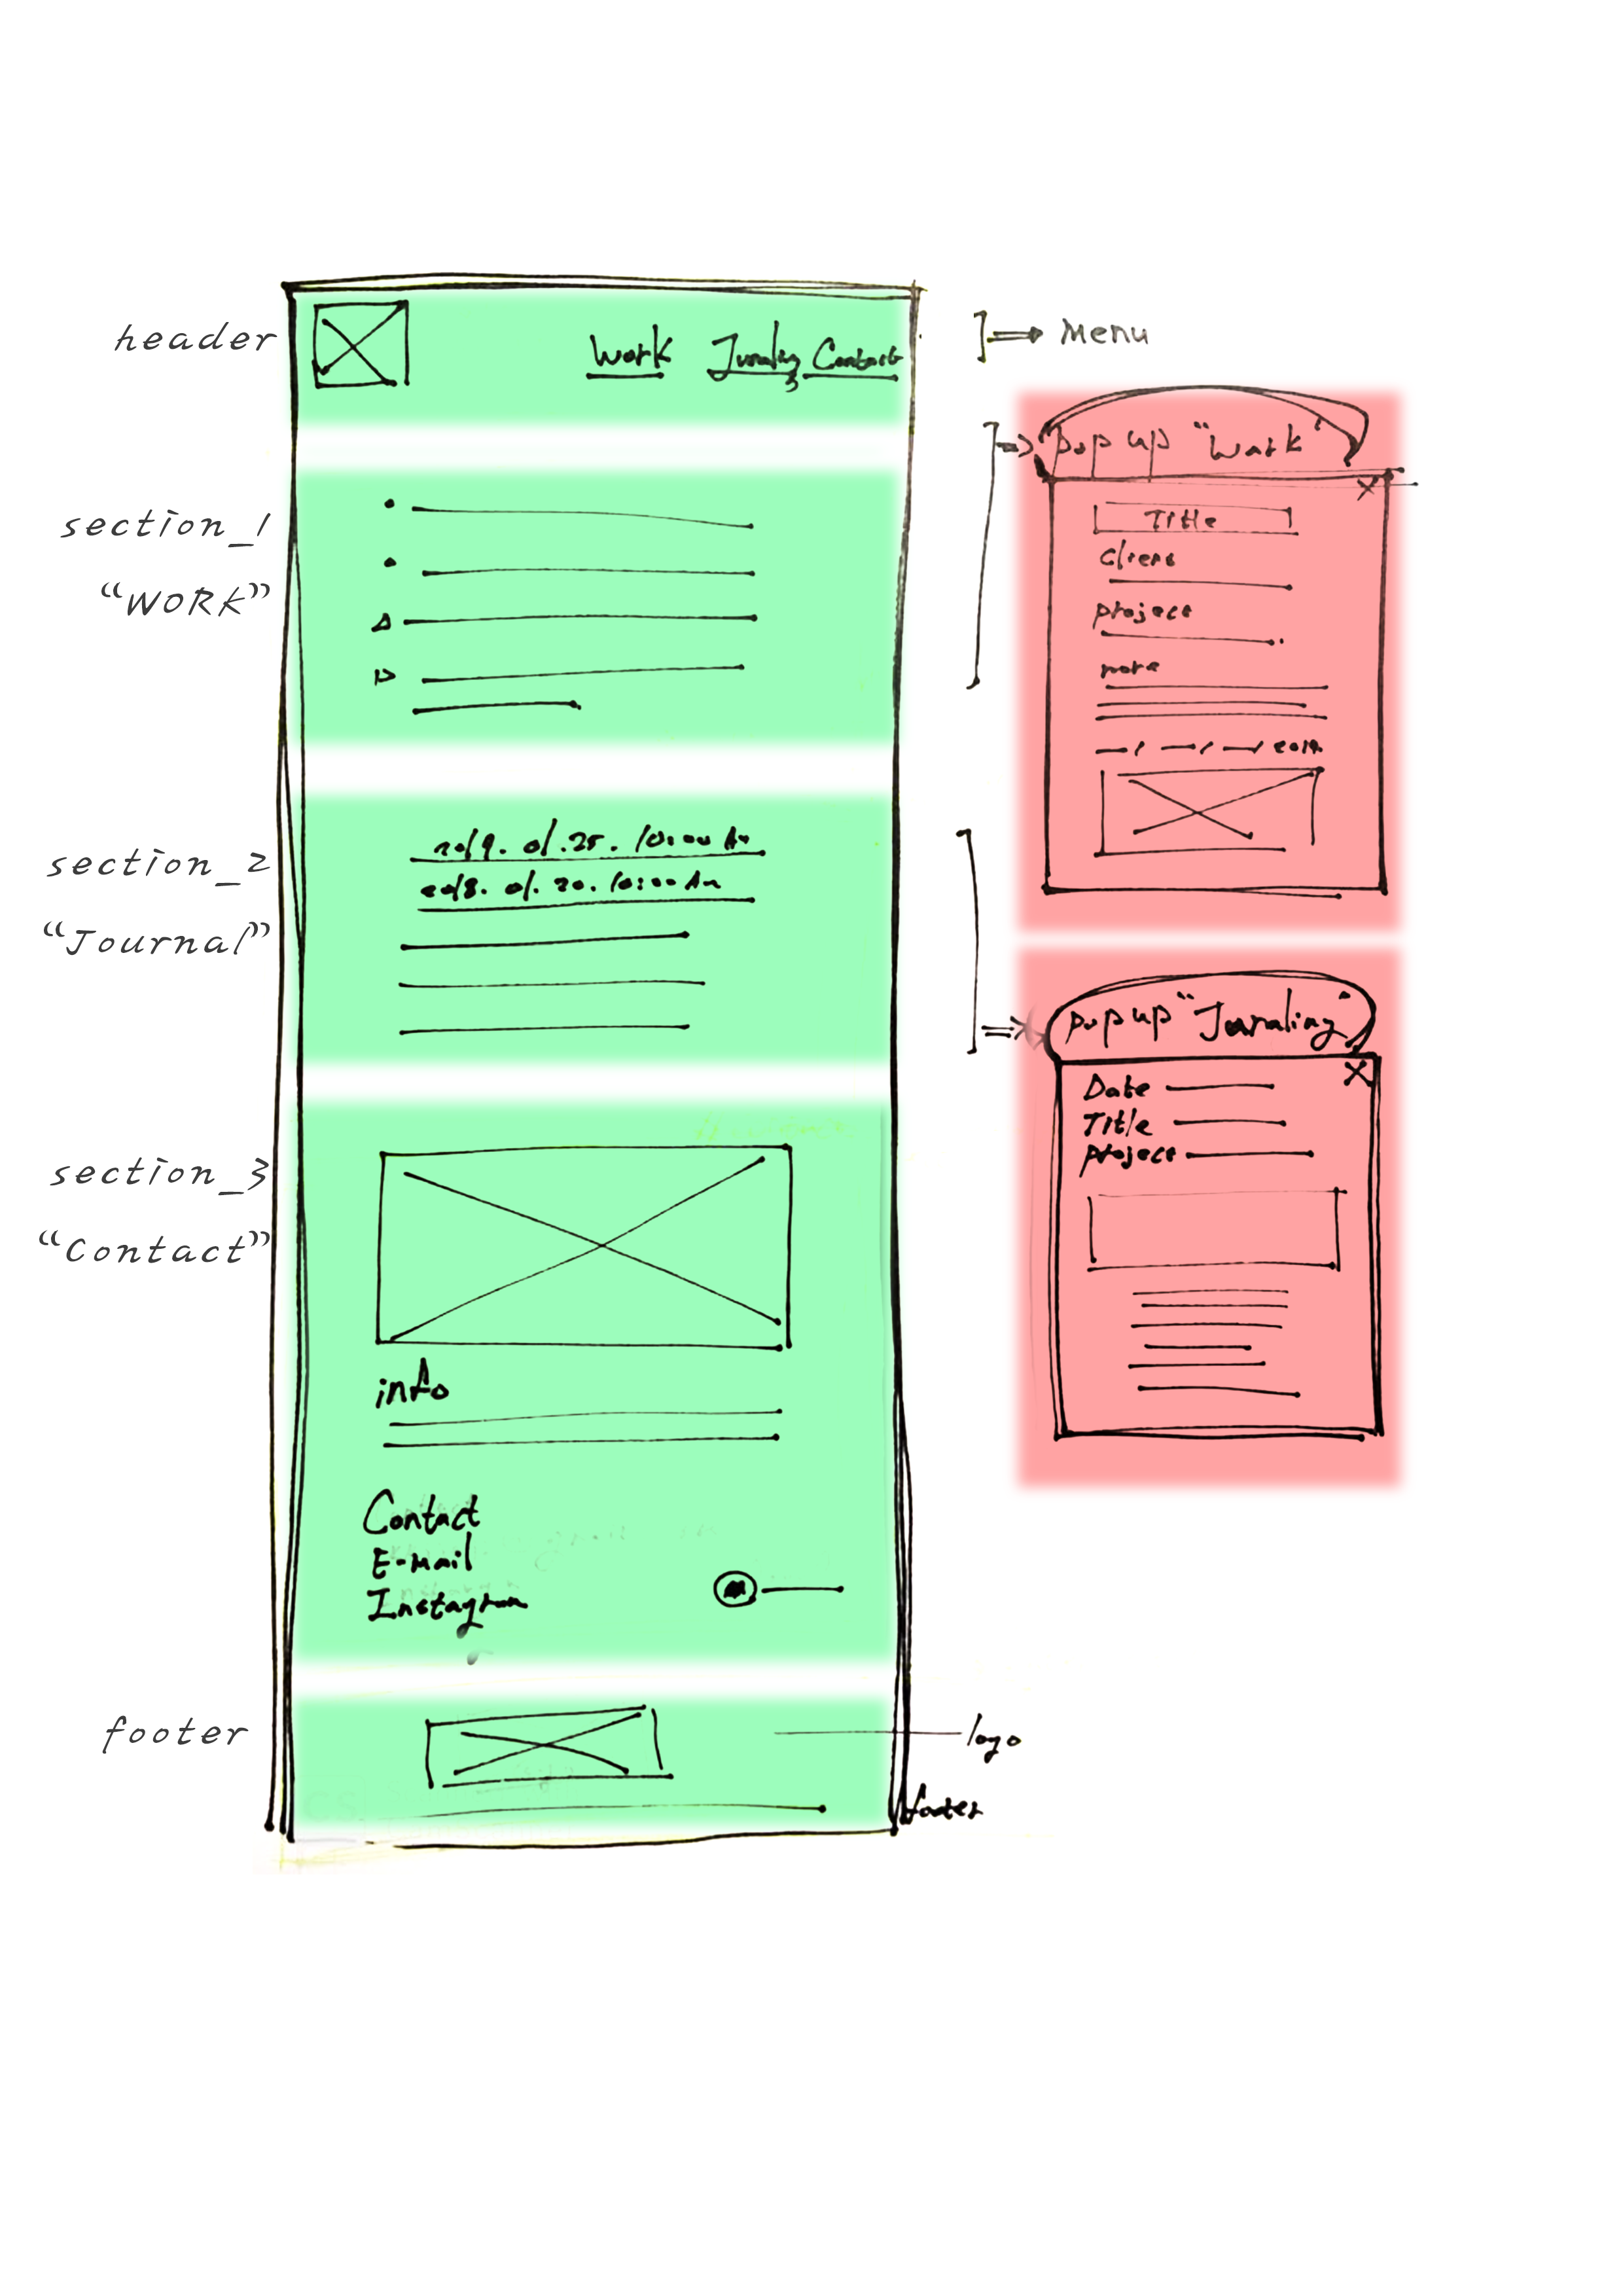 header
Work Jurnaling Contact
Menu
section_1
"WORK"
pop up "Work"
X
Title
Client
project
note
2019.
section_2
"Journal"
2019. 01. 25. 10:00 AM
2018. 01. 20. 10:00 AM
pop up "Jurnaling"
X
Date
Title
project
section_3
"Contact"
info
Contact
E-mail
Instagram
footer
logo
footer